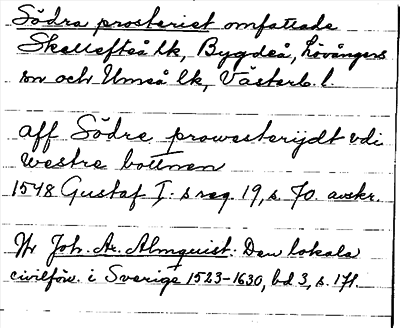 Södra prosteriet omfattade
Skellefteå lk, Bygdeå, Lövångers
sn och Umeå lk, Västerb. l.
aff Södre prowesterijdt vdi
westre bottnen
1548 Gustaf I: s reg. 19, s. 70. avskr.
Joh. Ax. Almquist: Den lokala
civilförv. i Sverige 1523-1630, bd 3, s. 171.